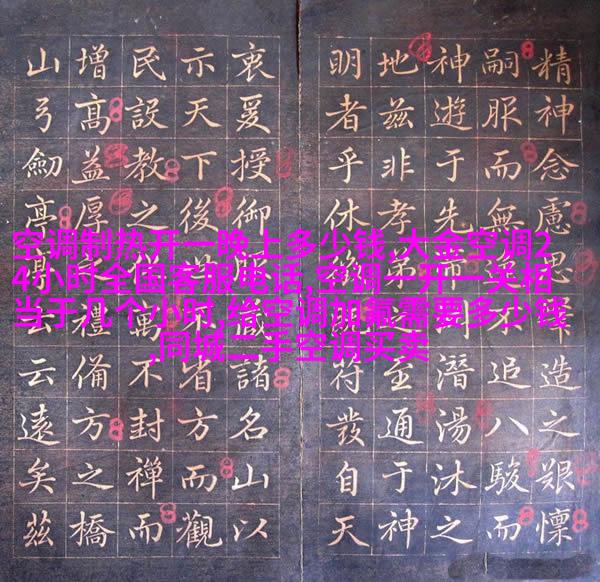 空调制热开一晚上多少钱,大金空调2
4小时全国客服电话,空调一开一关相
当于几个小时,给空调加氟需要多少钱
,同城二手空调买卖
精神念慮造之艱懍
嗣服而無不追八駿而
神遊于先潛湯沐之
地茲非孝弟至通于神
明者乎休符發自天
衷爰授御諸名山以
示天下後省方而觀
民設教之萬不封禪而
增高益厚禮備方之橋
山弓劍亭云云遠矣茲